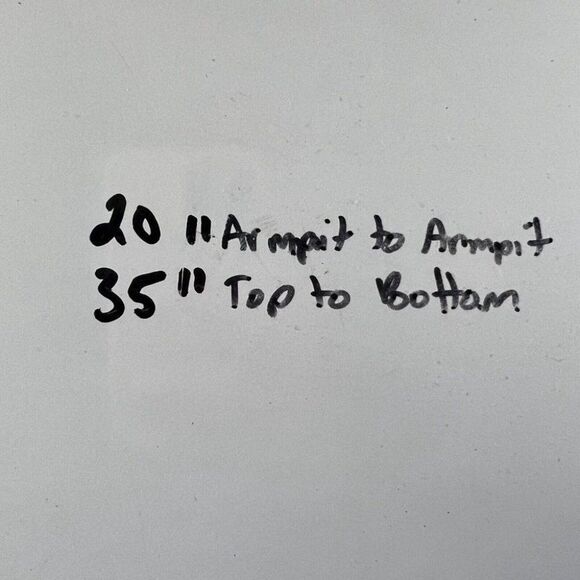 20" Armpit to Armpit
35" Top to Bottom